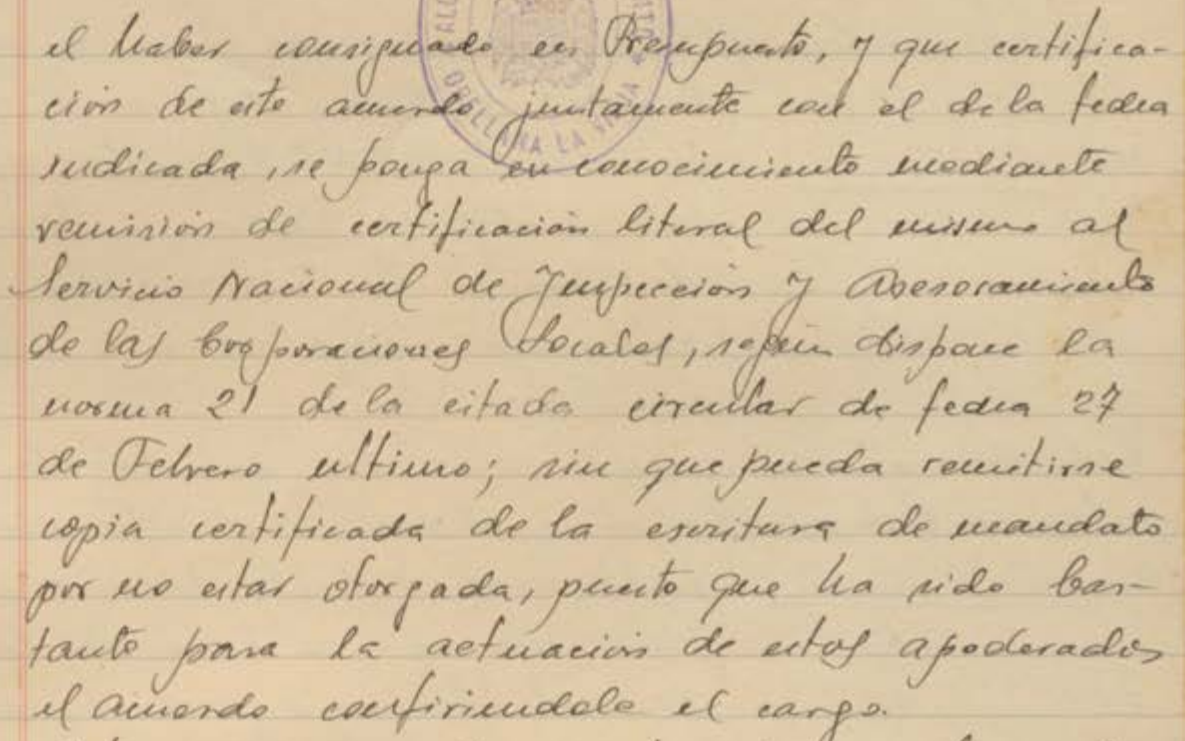 el haber consignado en Presupuesto, y que certifica-
ción de este acuerdo juntamente con el de la fecha
indicada, se ponga en conocimiento mediante
remisión de certificación literal del mismo al
Servicio Nacional de Inspección y Asesoramiento
de las Corporaciones Locales, según dispone la
norma 21 de la citada circular de fecha 27
de Febrero ultimo; sin que pueda remitirse
copia certificada de la escritura de mandato
por no estar otorgada, puesto que ha sido bas-
tante para la actuación de estos apoderados
el acuerdo confiriendole el cargo.
ORELLANA LA VIEJA